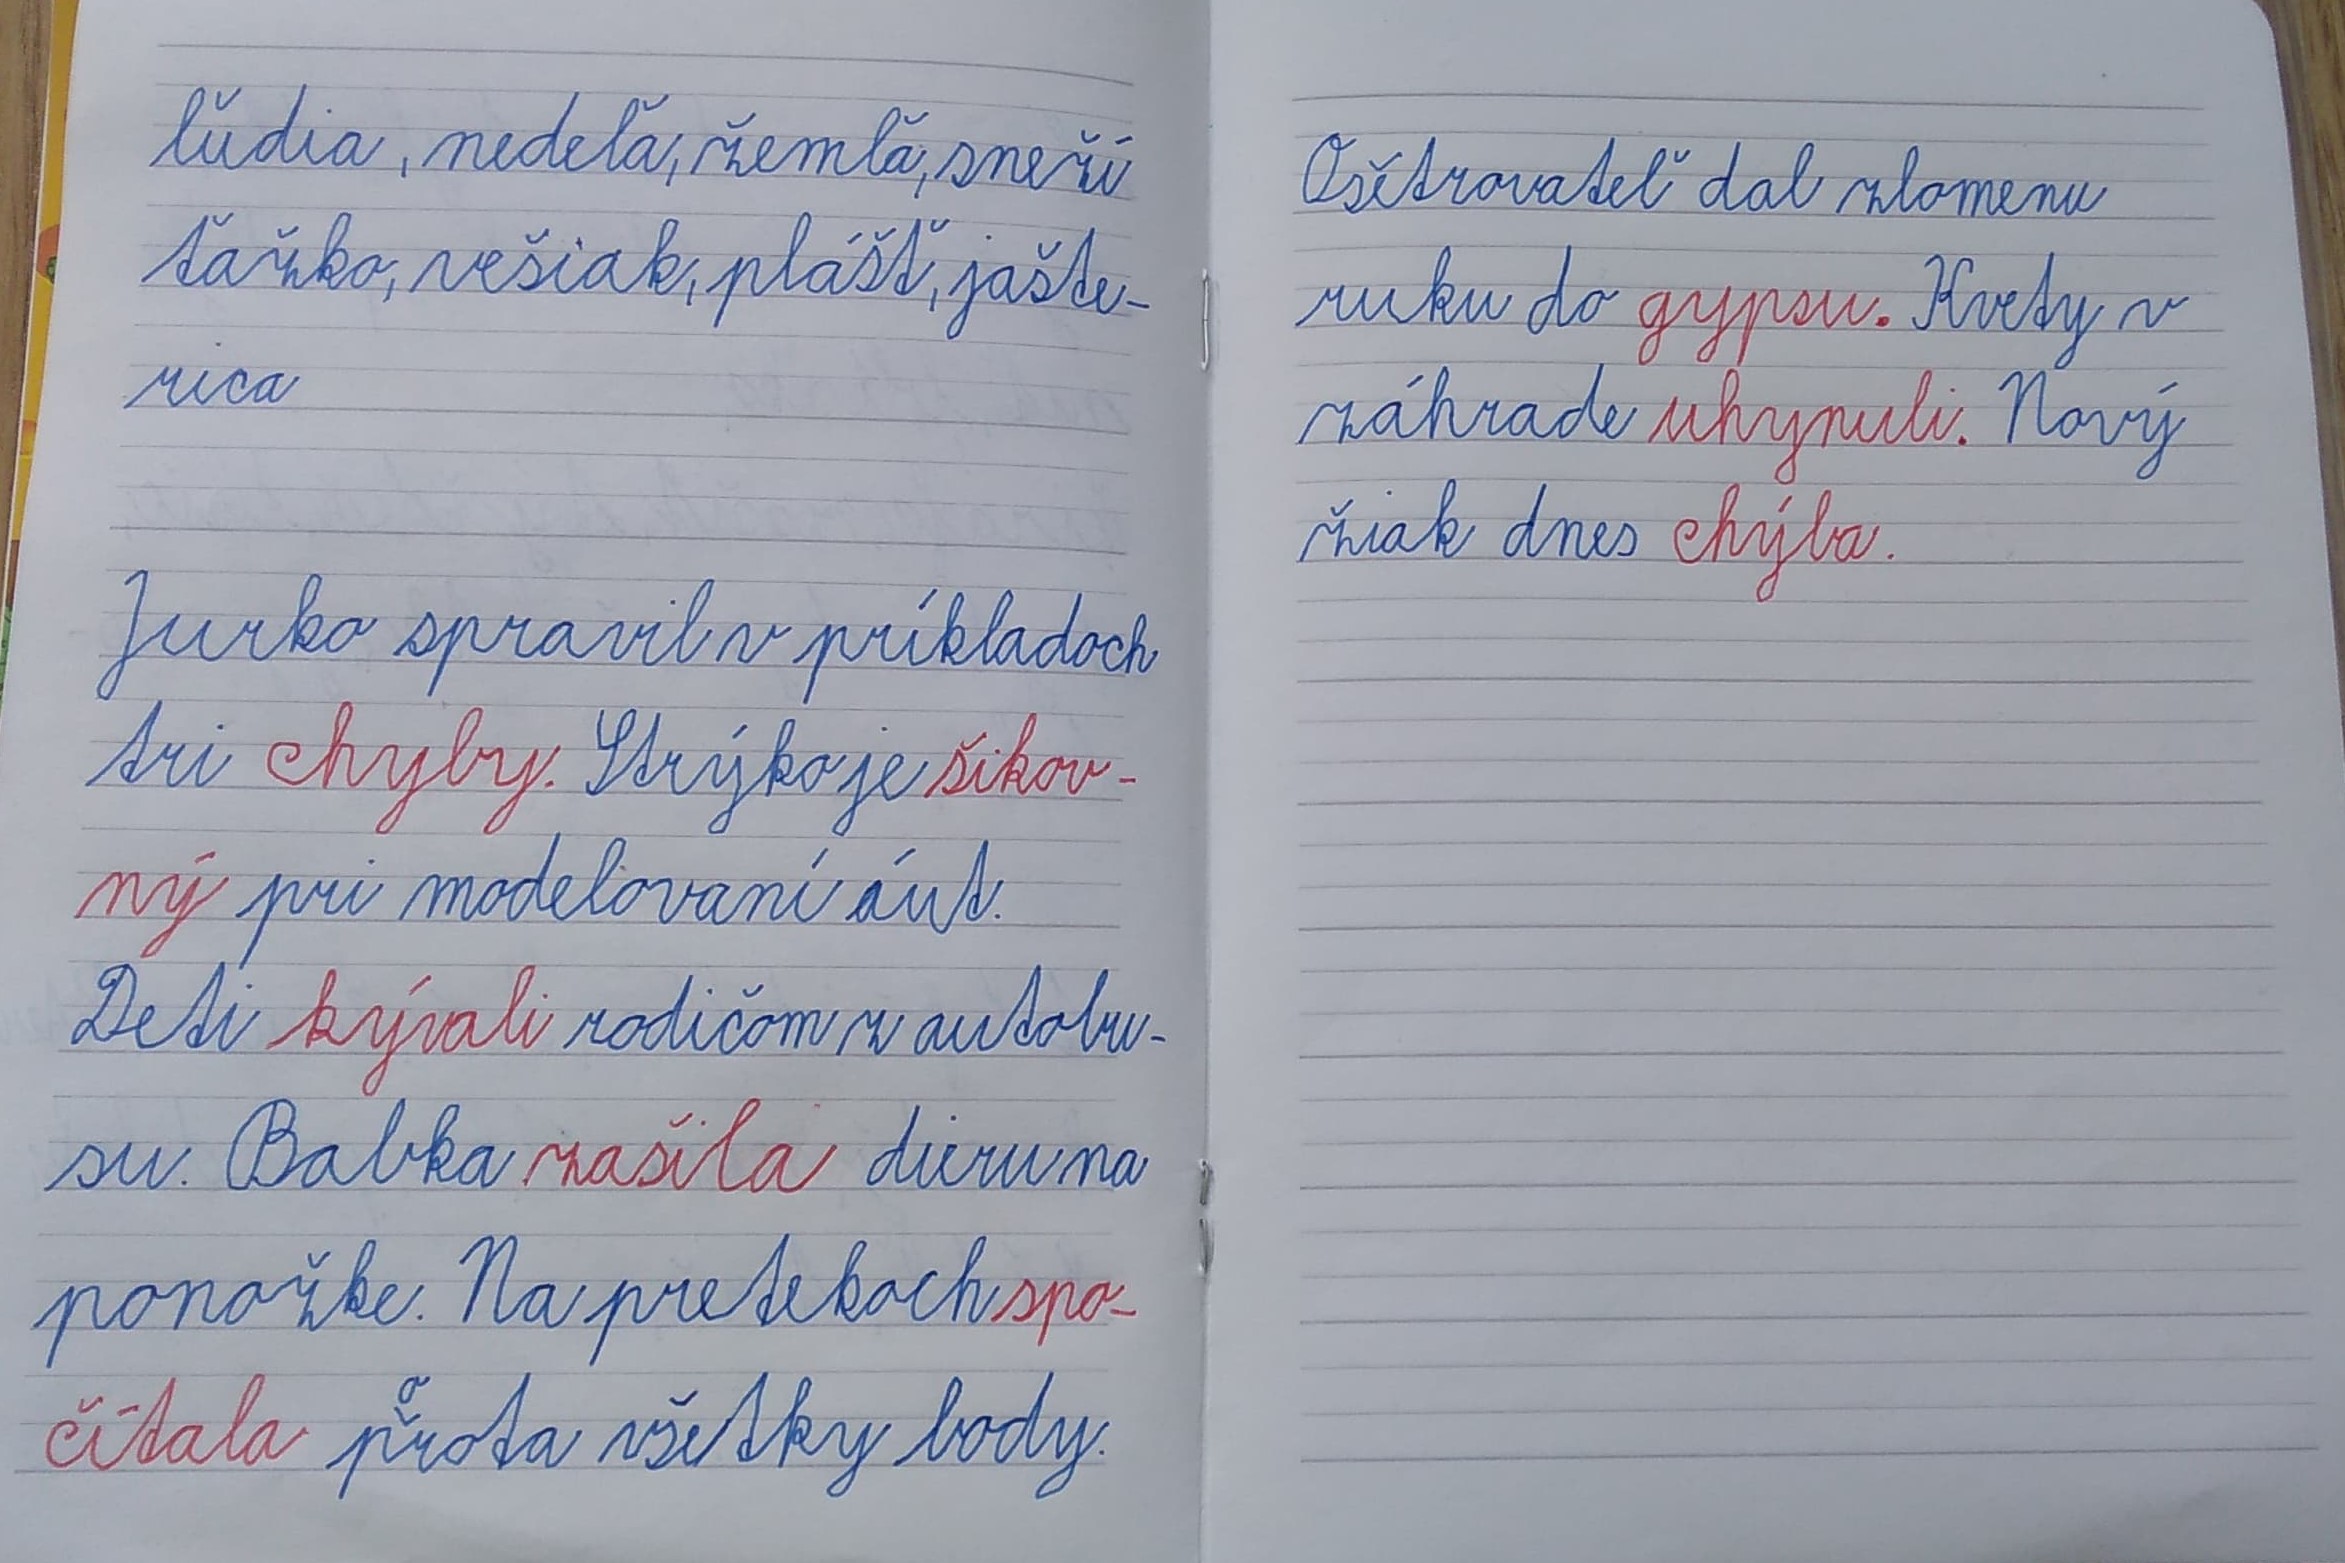 ľudia, nedeľa, žemľa, sneží
ťažko, vešiak, plášť, jašte-
rica
Jurko spravil v príkladoch
tri chyby. Strýko je šikov-
ný pri modelovaní áut.
Deti kývali rodičom z autobu-
su. Babka zašila dieru na
ponožke. Na pretekoch spo-
čítala porota všetky body.
Ošetrovateľ dal zlomenu
ruku do gypsu. Kvety v
záhrade uhynuli. Nový
žiak dnes chýba.